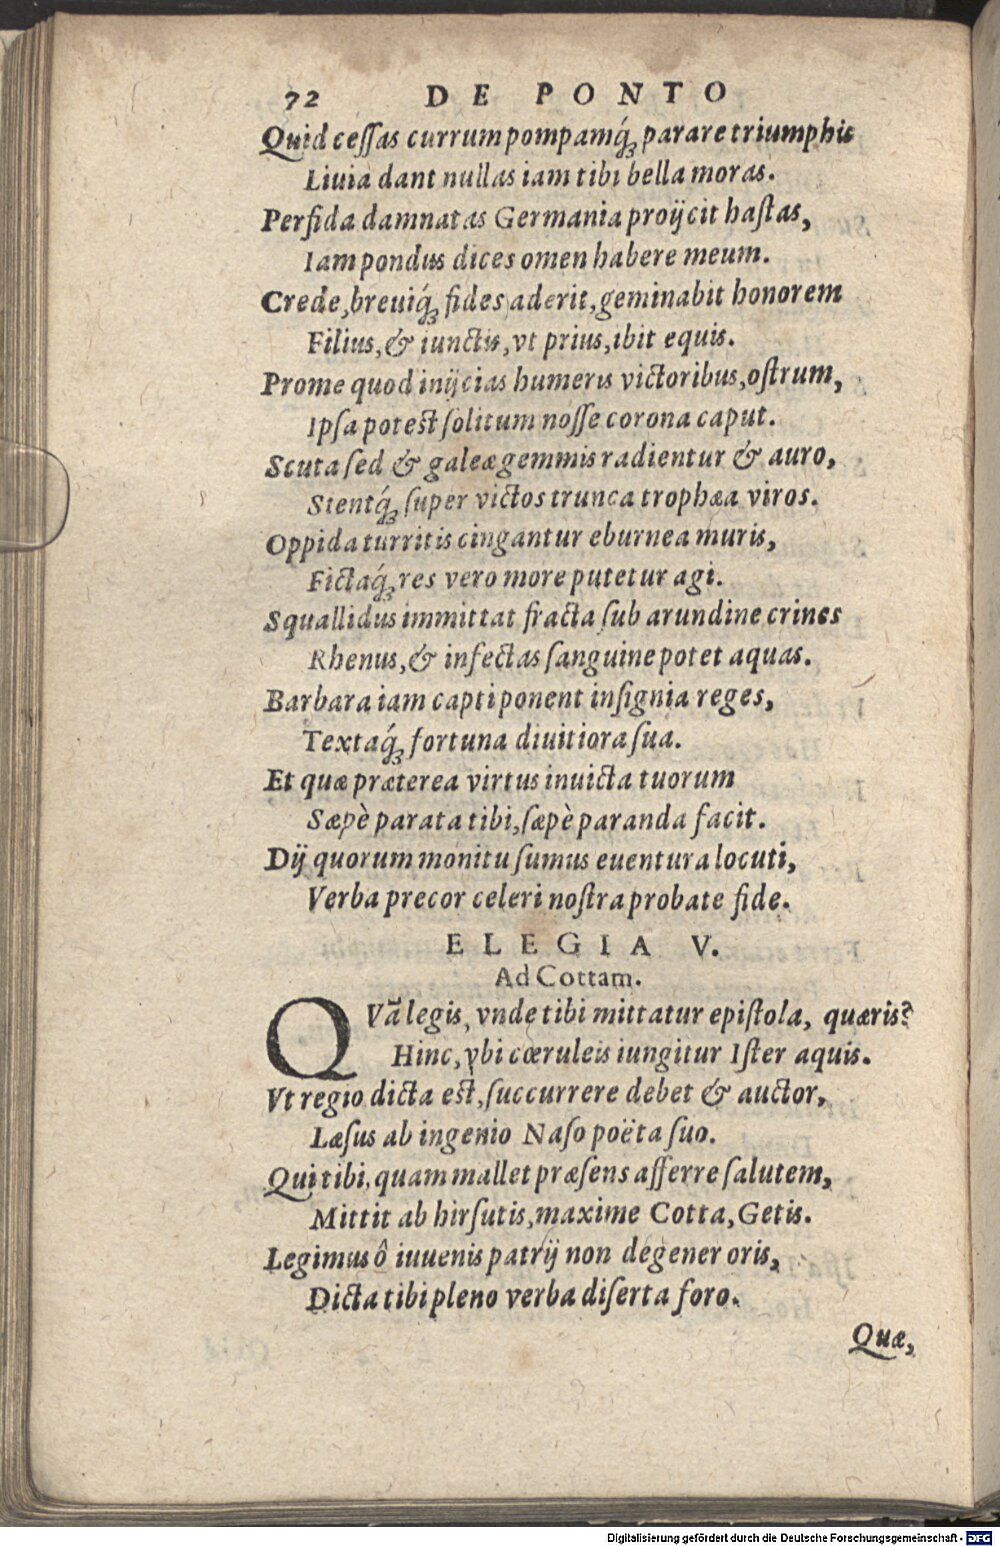 72 DE PONTO
Quid ceſſas currum pompamq́; parare triumphis
Liuia dant nullas iam tibi bella moras.
Perfida damnatas Germania proijcit haſtas,
Iam pondus dices omen habere meum.
Crede, breuiq́; fides aderit, geminabit honorem
Filius, & iunctis, vt prius, ibit equis.
Prome quod inijcias humeris victoribus, oſtrum,
Ipſa poteſt ſolitum noſſe corona caput.
Scuta ſed & galeæ gemmis radientur & auro,
Stentq́; ſuper victos trunca trophæa viros.
Oppida turritis cingantur eburnea muris,
Fictaq́; res vero more putetur agi.
Squallidus immittat fracta ſub arundine crines
Rhenus, & infectas ſanguine potet aquas.
Barbara iam capti ponent inſignia reges,
Textaq́; fortuna diuitiora ſua.
Et quæ præterea virtus inuicta tuorum
Sæpè parata tibi, ſæpè paranda facit.
Dij quorum monitu ſumus euentura locuti,
Verba precor celeri noſtra probate fide.
ELEGIA V.
Ad Cottam.
QVã legis, vnde tibi mittatur epiſtola, quæris?
Hinc, vbi cœruleis iungitur Iſter aquis.
Vt regio dicta eſt, ſuccurrere debet & auctor,
Læſus ab ingenio Naſo poëta ſuo.
Qui tibi, quam mallet præſens afferre ſalutem,
Mittit ab hirſutis, maxime Cotta, Getis.
Legimus ô iuuenis patrij non degener oris,
Dicta tibi pleno verba diſerta foro.
Quæ,
Digitalisierung gefördert durch die Deutsche Forschungsgemeinschaft - DFG